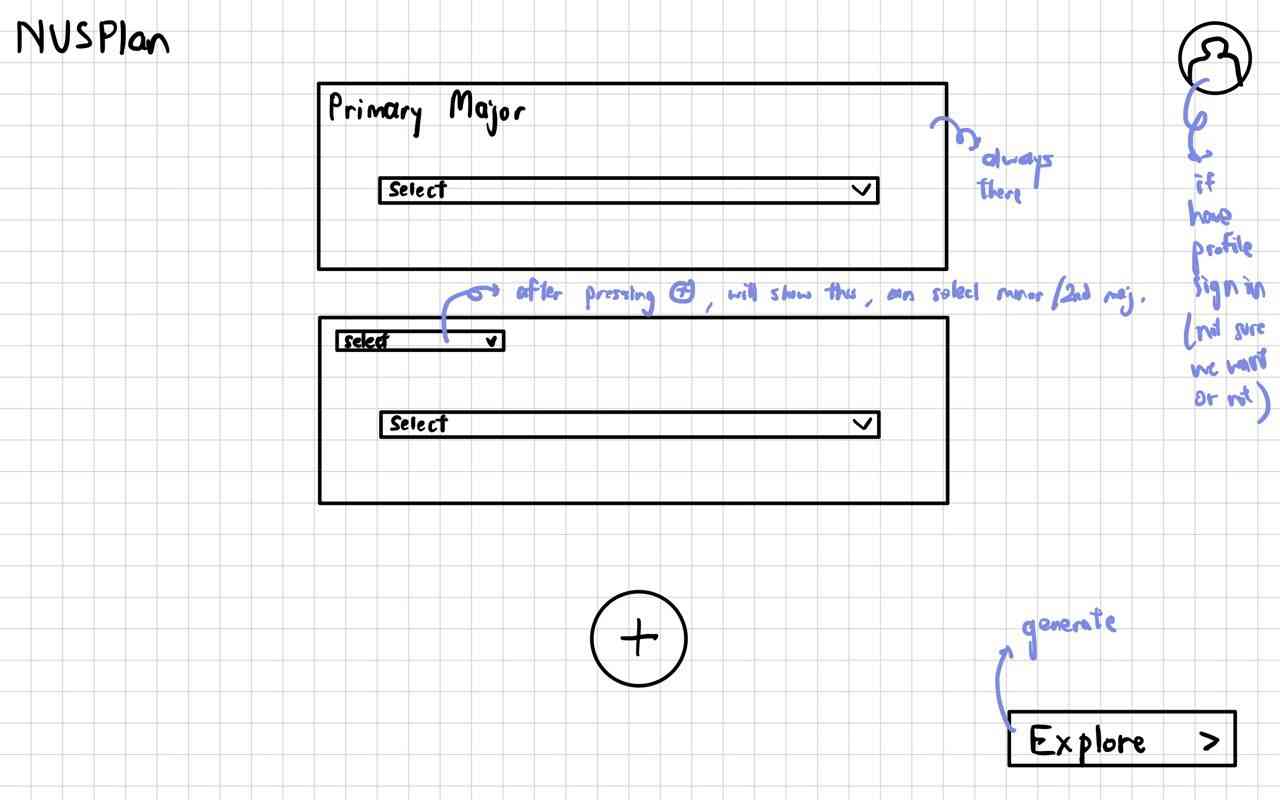 NUSPlan
Primary Major
Select
always
there
if
have
profile
sign in
(not sure
we want
or not)
after pressing +, will show this, can select minor/2nd maj.
select
Select
+
generate
Explore >